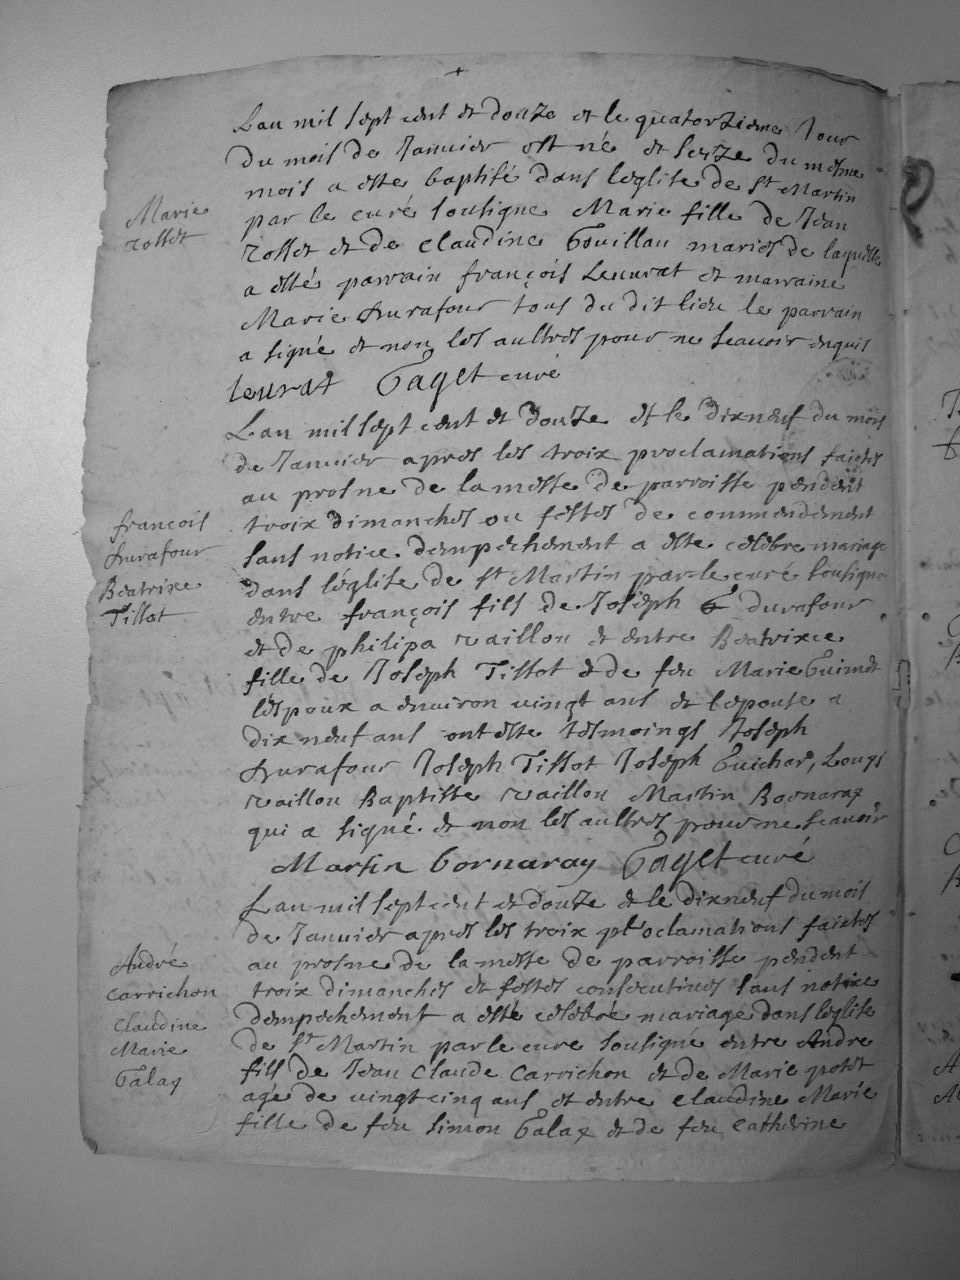 Lan mil sept cent et douze et le quatorzieme Jour
du mois de Januier est né et seize du mesme
mois a esté baptisé dans leglise de St Martin
Marie
par le curé sousigne Marie fille de Jean
rosset
rosset et de claudine Gouillau mariés de laquelle
a esté parrain françois Leuurat et marraine
Marie Durafour tous du dit lieu le parrain
a signé et non les aultres pour ne scauoir enquis
leurat Gaget curé
Lan mil sept cent et douze et le dixneuf du mois
de Januier apres les troix proclamations faictes
au prosne de la messe de parroisse pendent
françois
troix dimanches ou festes de commendement
Durafour
sans notice dempechement a este celebre mariage
Beatrixe
dans léglise de St Martin par le curé sousigne
Tissot
entre françois fils de Joseph durafour
et de philipa vaillon et entre Beatrixe
fille de Joseph Tissot et de feu Marie Guimet
lespoux a enuiron uingt ans et lepouse a
dix neuf ans ont este tesmoings Joseph
Durafour Joseph Tissot Joseph Guichar, Louys
vaillon Baptiste vaillon Martin Bornaray
qui a signé et non les aultres pour ne scauoir
Martin bornaray Gaget curé
Lan mil sept cent et douze et le dixneuf du mois
de Januier apres les troix proclamations faictes
André
au prosne de la messe de parroisse pendent
carrichon
troix dimanches et festes consecutiues sans notice
claudine
dempechement a esté celebré mariage dans leglise
Marie
de St Martin par le cure sousigné entre Andre
Galay
fils de Jean claude carrichon et de Marie potet
agé de uingt cinq ans et entre claudine Marie
fille de feu simon Galay et de feu catherine